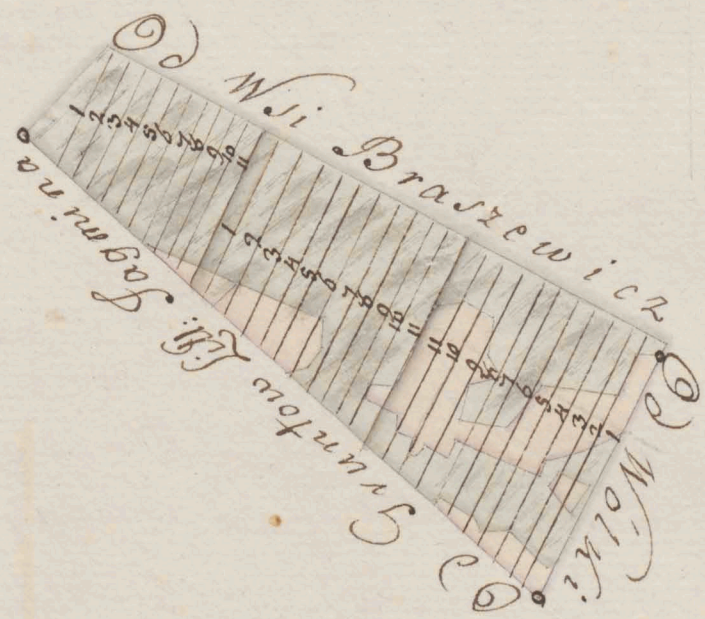 Od Wsi Braszewicz
Od Wolki
Od Gruntow Litt: Jagmina
1 2 3 4 5 6 7 8 9 10 11
1 2 3 4 5 6 7 8 9 10 11
11 10 9 8 7 6 5 4 3 2 1